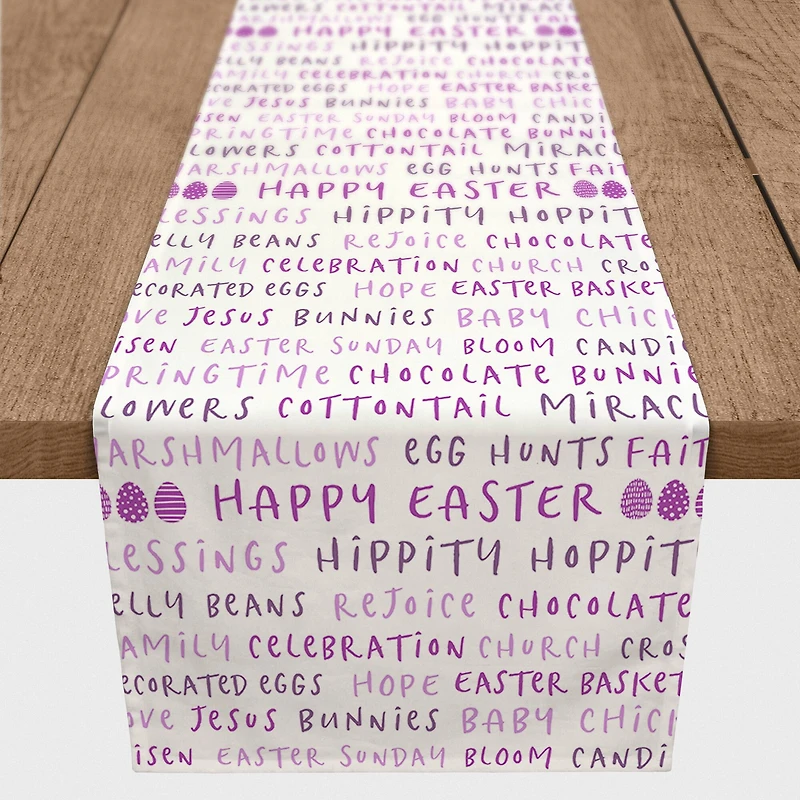 MARSHMALLOWS EGG HUNTS FAIT
HAPPY EASTER
LESSINGS HIPPITY HOPPIT
ELLY BEANS REJOICE CHOCOLATE
AMILY CELEBRATION CHURCH CROS
ECORATED EGGS HOPE EASTER BASKET
OVE JESUS BUNNIES BABY CHICK
ISEN EASTER SUNDAY BLOOM CANDI
PRINGTIME CHOCOLATE BUNNIE
LOWERS COTTONTAIL MIRACL
ARSHMALLOWS EGG HUNTS FAIT
HAPPY EASTER
LESSINGS HIPPITY HOPPIT
ELLY BEANS REJOICE CHOCOLATE
AMILY CELEBRATION CHURCH CROS
ECORATED EGGS HOPE EASTER BASKET
OVE JESUS BUNNIES BABY CHICK
ISEN EASTER SUNDAY BLOOM CANDIE
PRINGTIME CHOCOLATE BUNNIE
LOWERS COTTONTAIL MIRACL
ARSHMALLOWS EGG HUNTS FAIT
HAPPY EASTER
LESSINGS HIPPITY HOPPIT
ELLY BEANS REJOICE CHOCOLATE
AMILY CELEBRATION CHURCH CROS
ECORATED EGGS HOPE EASTER BASKET
OVE JESUS BUNNIES BABY CHICK
ISEN EASTER SUNDAY BLOOM CANDI